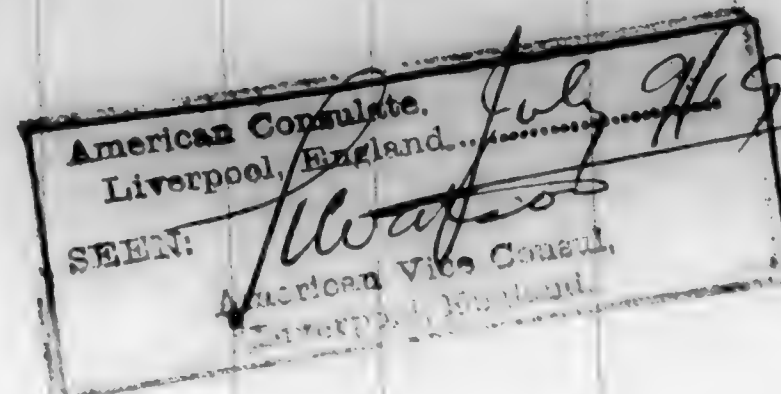 American Consulate,
Liverpool, England........ July 9/19
SEEN: Watson
American Vice Consul,
Liverpool, England.